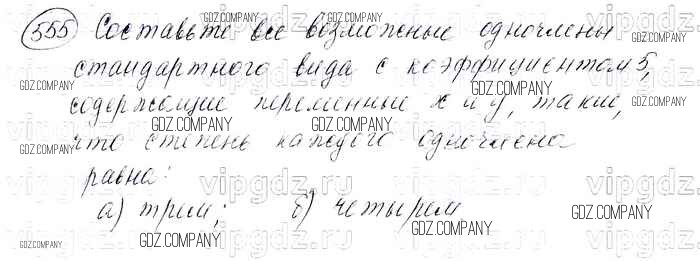 555 Составьте все возможные одночлены
стандартного вида с коэффициентом 5,
содержащие переменные x и y, такие,
что степень каждого одночлена
равна:
а) трем; б) четырем
GDZ.COMPANY
GDZ.COMPANY
GDZ.COMPANY
GDZ.COMPANY
GDZ.COMPANY
GDZ.COMPANY
GDZ.COMPANY
GDZ.COMPANY
GDZ.COMPANY
GDZ.COMPANY
GDZ.COMPANY
GDZ.COMPANY
vipgdz.ru
vipgdz.ru
vipgdz.ru